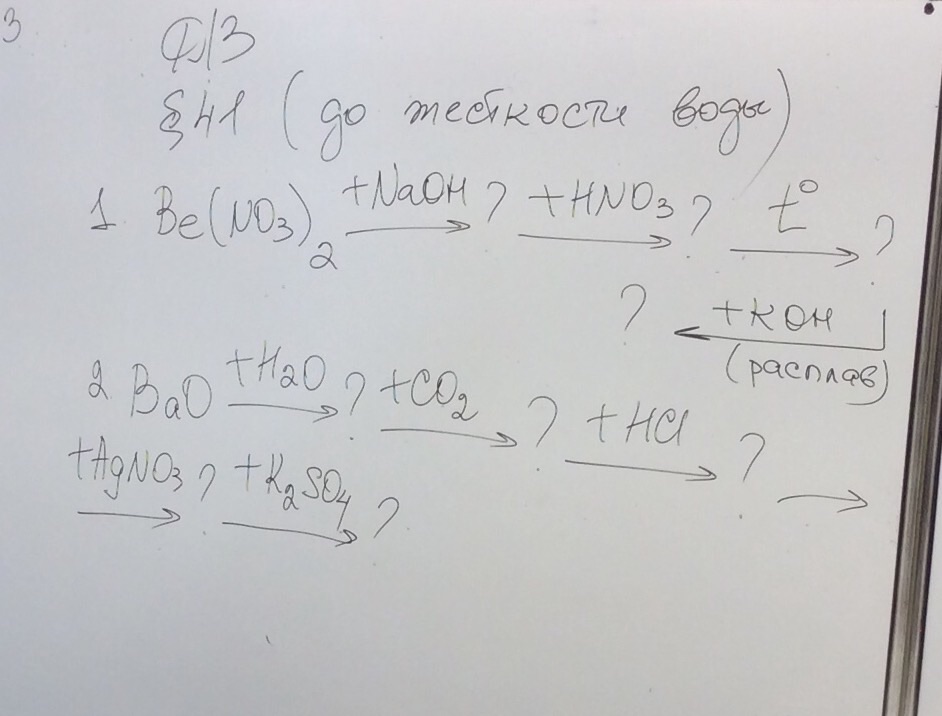 3
Д/З
§41 (до жесткости воды)
1. Be(NO3)2 +NaOH → ? +HNO3 → ? t° → ?
? ← +KOH
(расплав)
2 BaO +H2O → ? +CO2 → ? +HCl → ? →
+AgNO3 → ? +K2SO4 → ?